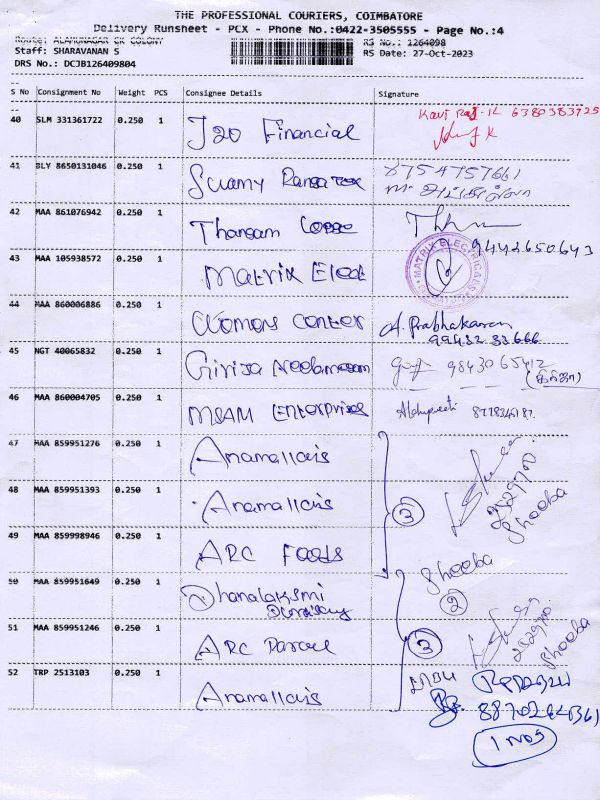 THE PROFESSIONAL COURIERS, COIMBATORE
Delivery Runsheet - PCX - Phone No.:0422-3505555 - Page No.:4
Route: ALAMUNAGAR CK COLONY
RS No.: 1264098
Staff: SHARAVANAN S
RS Date: 27-Oct-2023
DRS No.: DCJB126409804
S No Consignment No Weight PCS Consignee Details Signature
40 SLM 331361722 0.250 1 J20 Financial
6380383725
41 BLY 8650131046 0.250 1 Swamy
8754757661
42 MAA 861076942 0.250 1 Thangam
9442650643
43 MAA 105938572 0.250 1 Matrix Elect
MATRIX ELECTRICALS
44 MAA 860006886 0.250 1 Womens Center A. Prabhakaran
99432 33666
45 NGT 40065832 0.250 1 Girija Neelamegam 98430 65412
(கிரிஜா)
46 MAA 860004705 0.250 1 MSAM Enterprises
47 MAA 859951276 0.250 1 Anamallais
48 MAA 859951393 0.250 1 Anamallais
3
2529700
Shooba
49 MAA 859998946 0.250 1 ARC Foods
Shooba
50 MAA 859951649 0.250 1 Dhanalaksmi
2
51 MAA 859951246 0.250 1 ARC Parcel
3
2529700
Shooba
52 TRP 2513103 0.250 1 Anamallais
1 nos